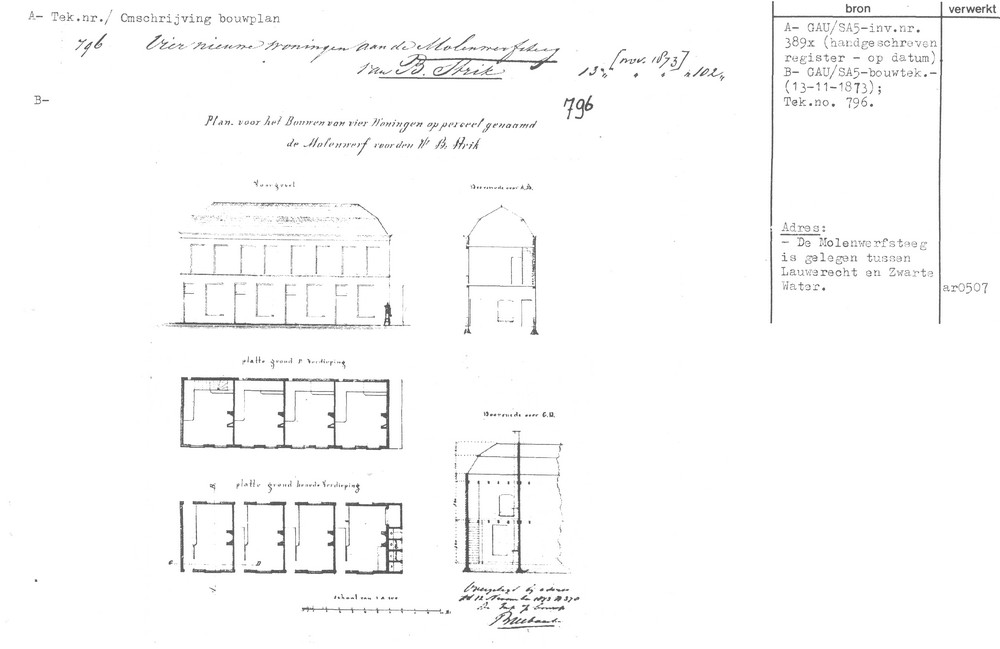 A- Tek.nr./ Omschrijving bouwplan
796 Vier nieuwe woningen aan de Molenwerfsteeg
van B. Strik
[nov. 1873]
13 " " " 102 "
B-
796
Plan voor het Bouwen van vier Woningen op perceel genaamd
de Molenwerf voor den Hr B. Strik
Voorgevel
Doorsnede over A.B.
platte grond 1e Verdieping
Doorsnede over C.D.
platte grond beneede Verdieping
D
Schaal van 1 à 100
Overgelegd bij adres
dd 12 November 1873
bron
verwerkt
A- GAU/SA5-inv.nr.
389x (handgeschreven
register - op datum)
B- GAU/SA5-bouwtek.-
(13-11-1873);
Tek.no. 796.
Adres:
- De Molenwerfsteeg
is gelegen tussen
Lauwerecht en Zwarte
Water.
ar0507